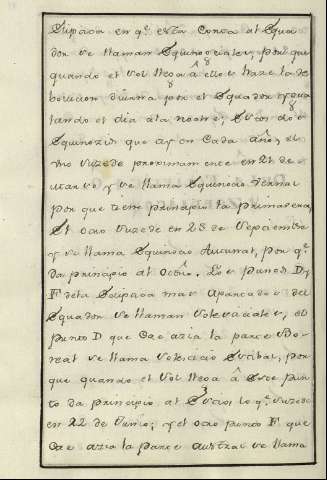 Eclipica en q.e esta Corta al Equa
dor se llaman Equinocciales, por que
quando el Sol llega â ellos haze la de
bolucion diurna por el Equador ygua
lando el dia âla noche; Estos dos
Equinozios que ay en Cada año, el
uno suzede proximamente en 21 de
Marzo y se llama Equinocio Vernal
por que tiene principio la primabera,
El otro suzede en 23 de Sepciembre
y se llama Equinocio Autunal, por q.e
da principio al Otoño. Los punos D y
F dela Eclipica mas Apartados del
Equador se llaman Solsticiales, el
punto D que Cae azia la parte Bo-
real se llama Solsticio Estibal, por
que quando el Sol llega â Este pun
to da principio al Estio, lo q.e suzede
en 22 de Junio; y el otro punto F que
Cae azia la parte Austral se llama